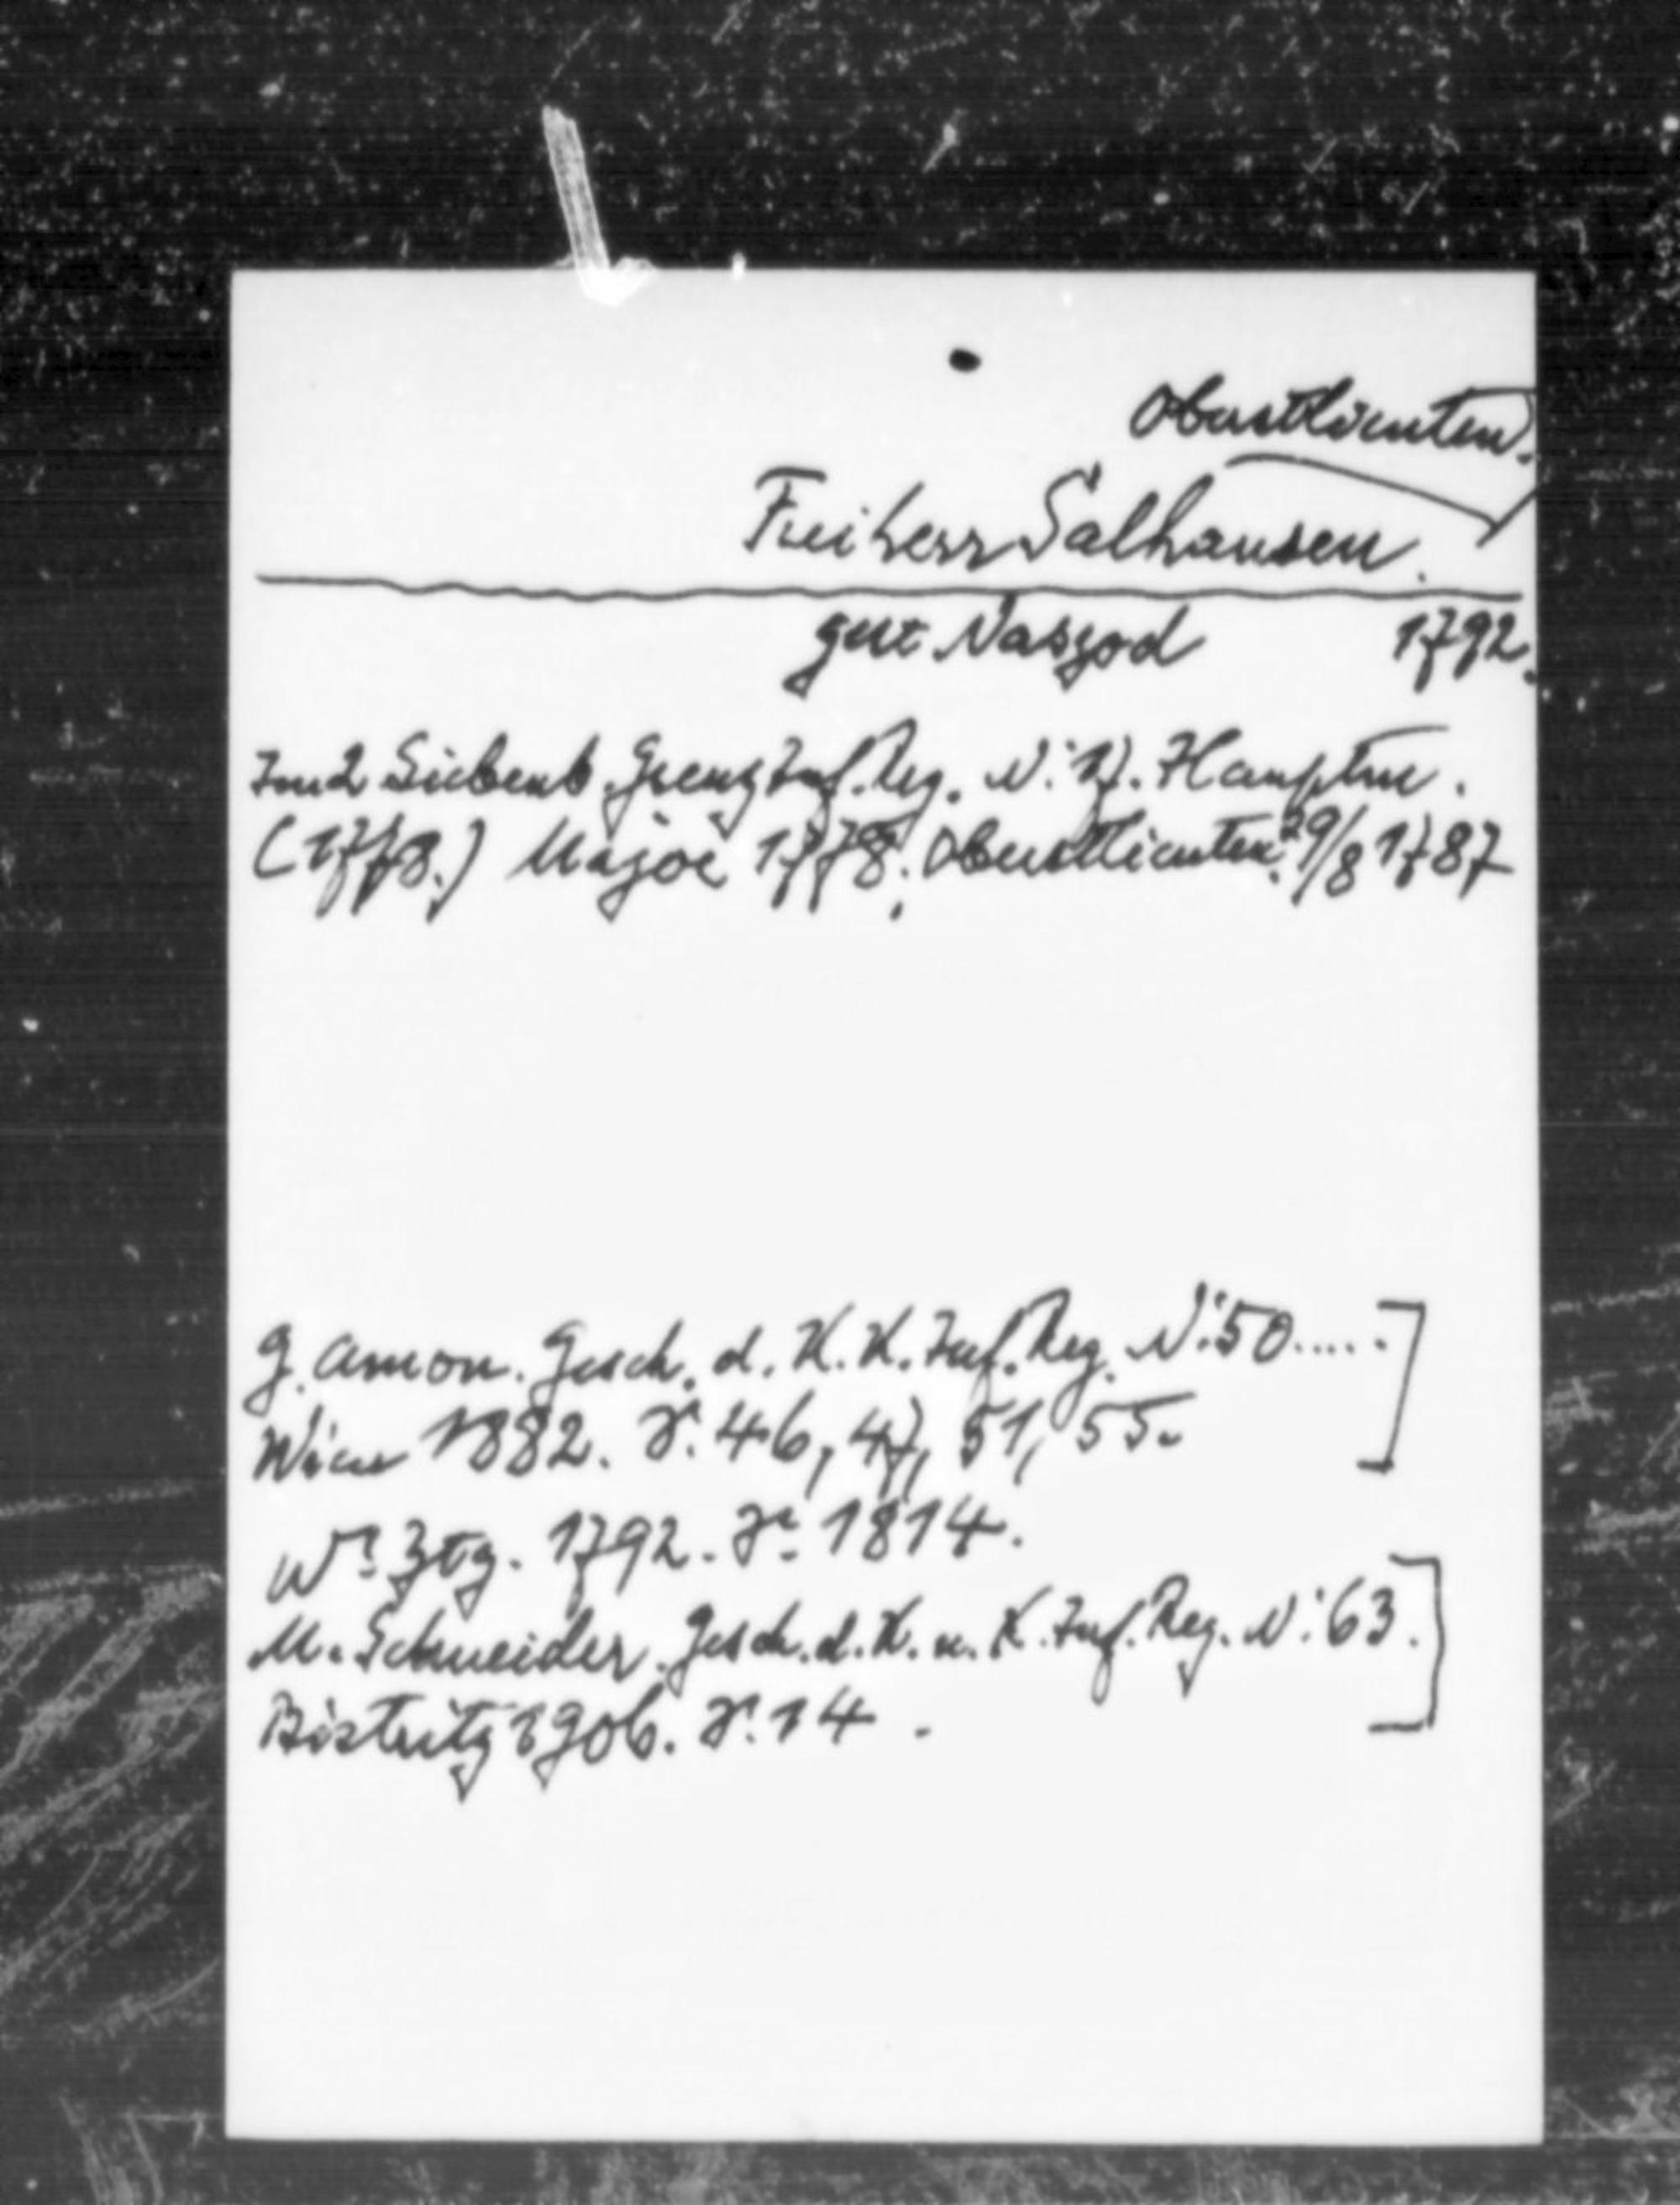 Oberstlieuten.
Freiherr Salhausen.
gest Naszod 1792.
Im 2 Siebenb. Grenz Inf. Reg. N: 17. Hauptm.
(1773.) Major 1778. Oberstlieuten. 29/8 1787
G. Amon. Gesch. d. K. K. Inf. Reg. N: 50.....]
Wien 1882. S. 46, 47, 51, 55.
Wr Ztg. 1792. S. 1814.
M. Schneider. Gesch. d. K. u. K. Inf. Reg. N: 63.]
Bistritz 1906. S. 14.